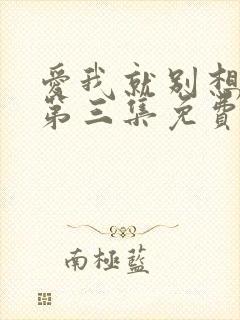 愛我就別想
第三集免費
南極藍